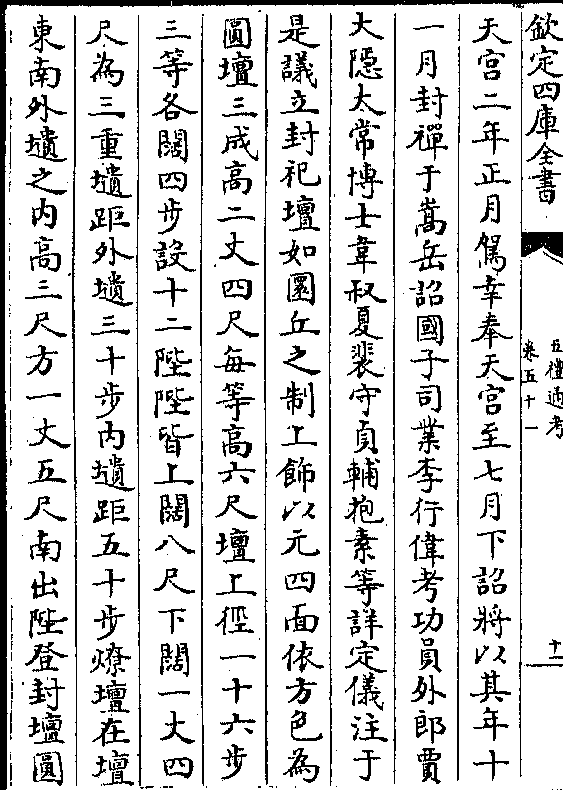 欽定四庫全書
五禮通考
卷五十一
十一
天宮二年正月駕幸奉天宮至七月下詔將以其年十
一月封禪于嵩岳詔國子司業李行偉考功員外郎賈
大隱太常博士韋叔夏裴守貞輔抱素等詳定儀注于
是議立封祀壇如圜丘之制上飾以元四面依方色為
圓壇三成高二丈四尺每等高六尺壇上徑一十六步
三等各闊四步設十二陛陛皆上闊八尺下闊一丈四
尺為三重壝距外壝三十步内壝距五十步燎壇在壇
東南外壝之内高三尺方一丈五尺南出陛登封壇圓